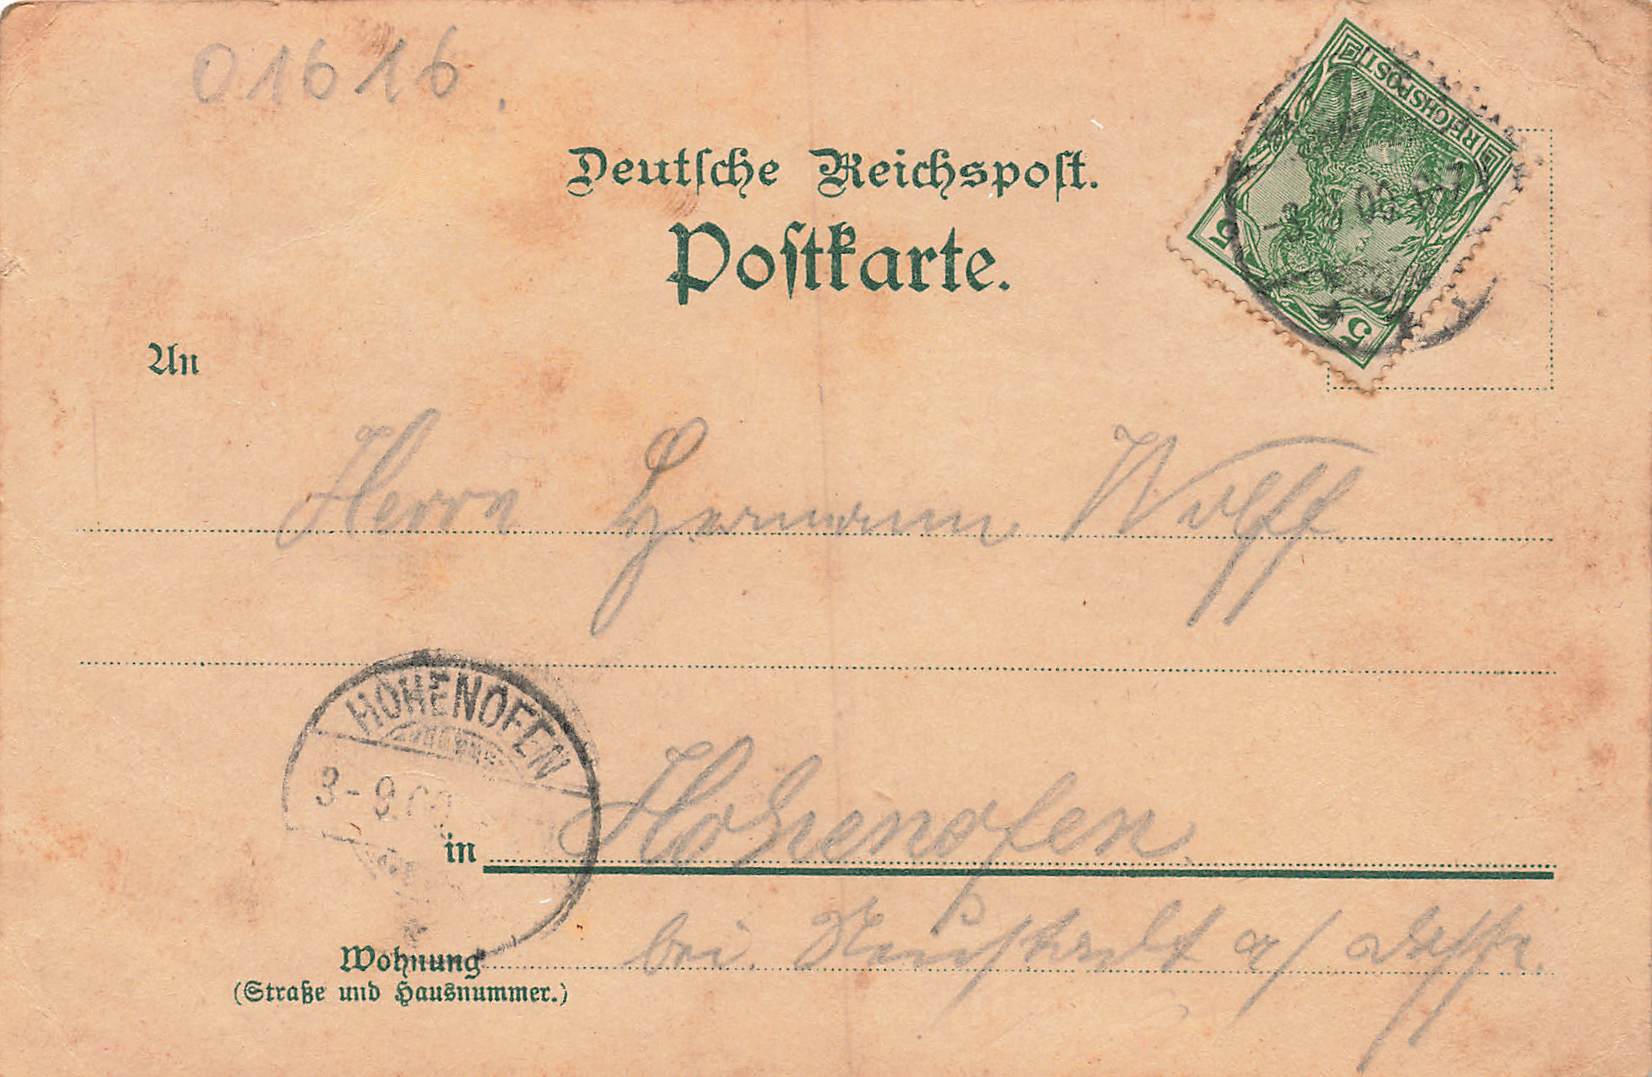 01616.
REICHSPOST
5
5
Deutſche Reichspoſt.
Poſtkarte.
An
Herrn Hermann Wolff.
HOHENOFEN
3-9.00
in Hohenofen.
bei Neustadt a/ Dosse.
Wohnung
(Straße und Hausnummer.)